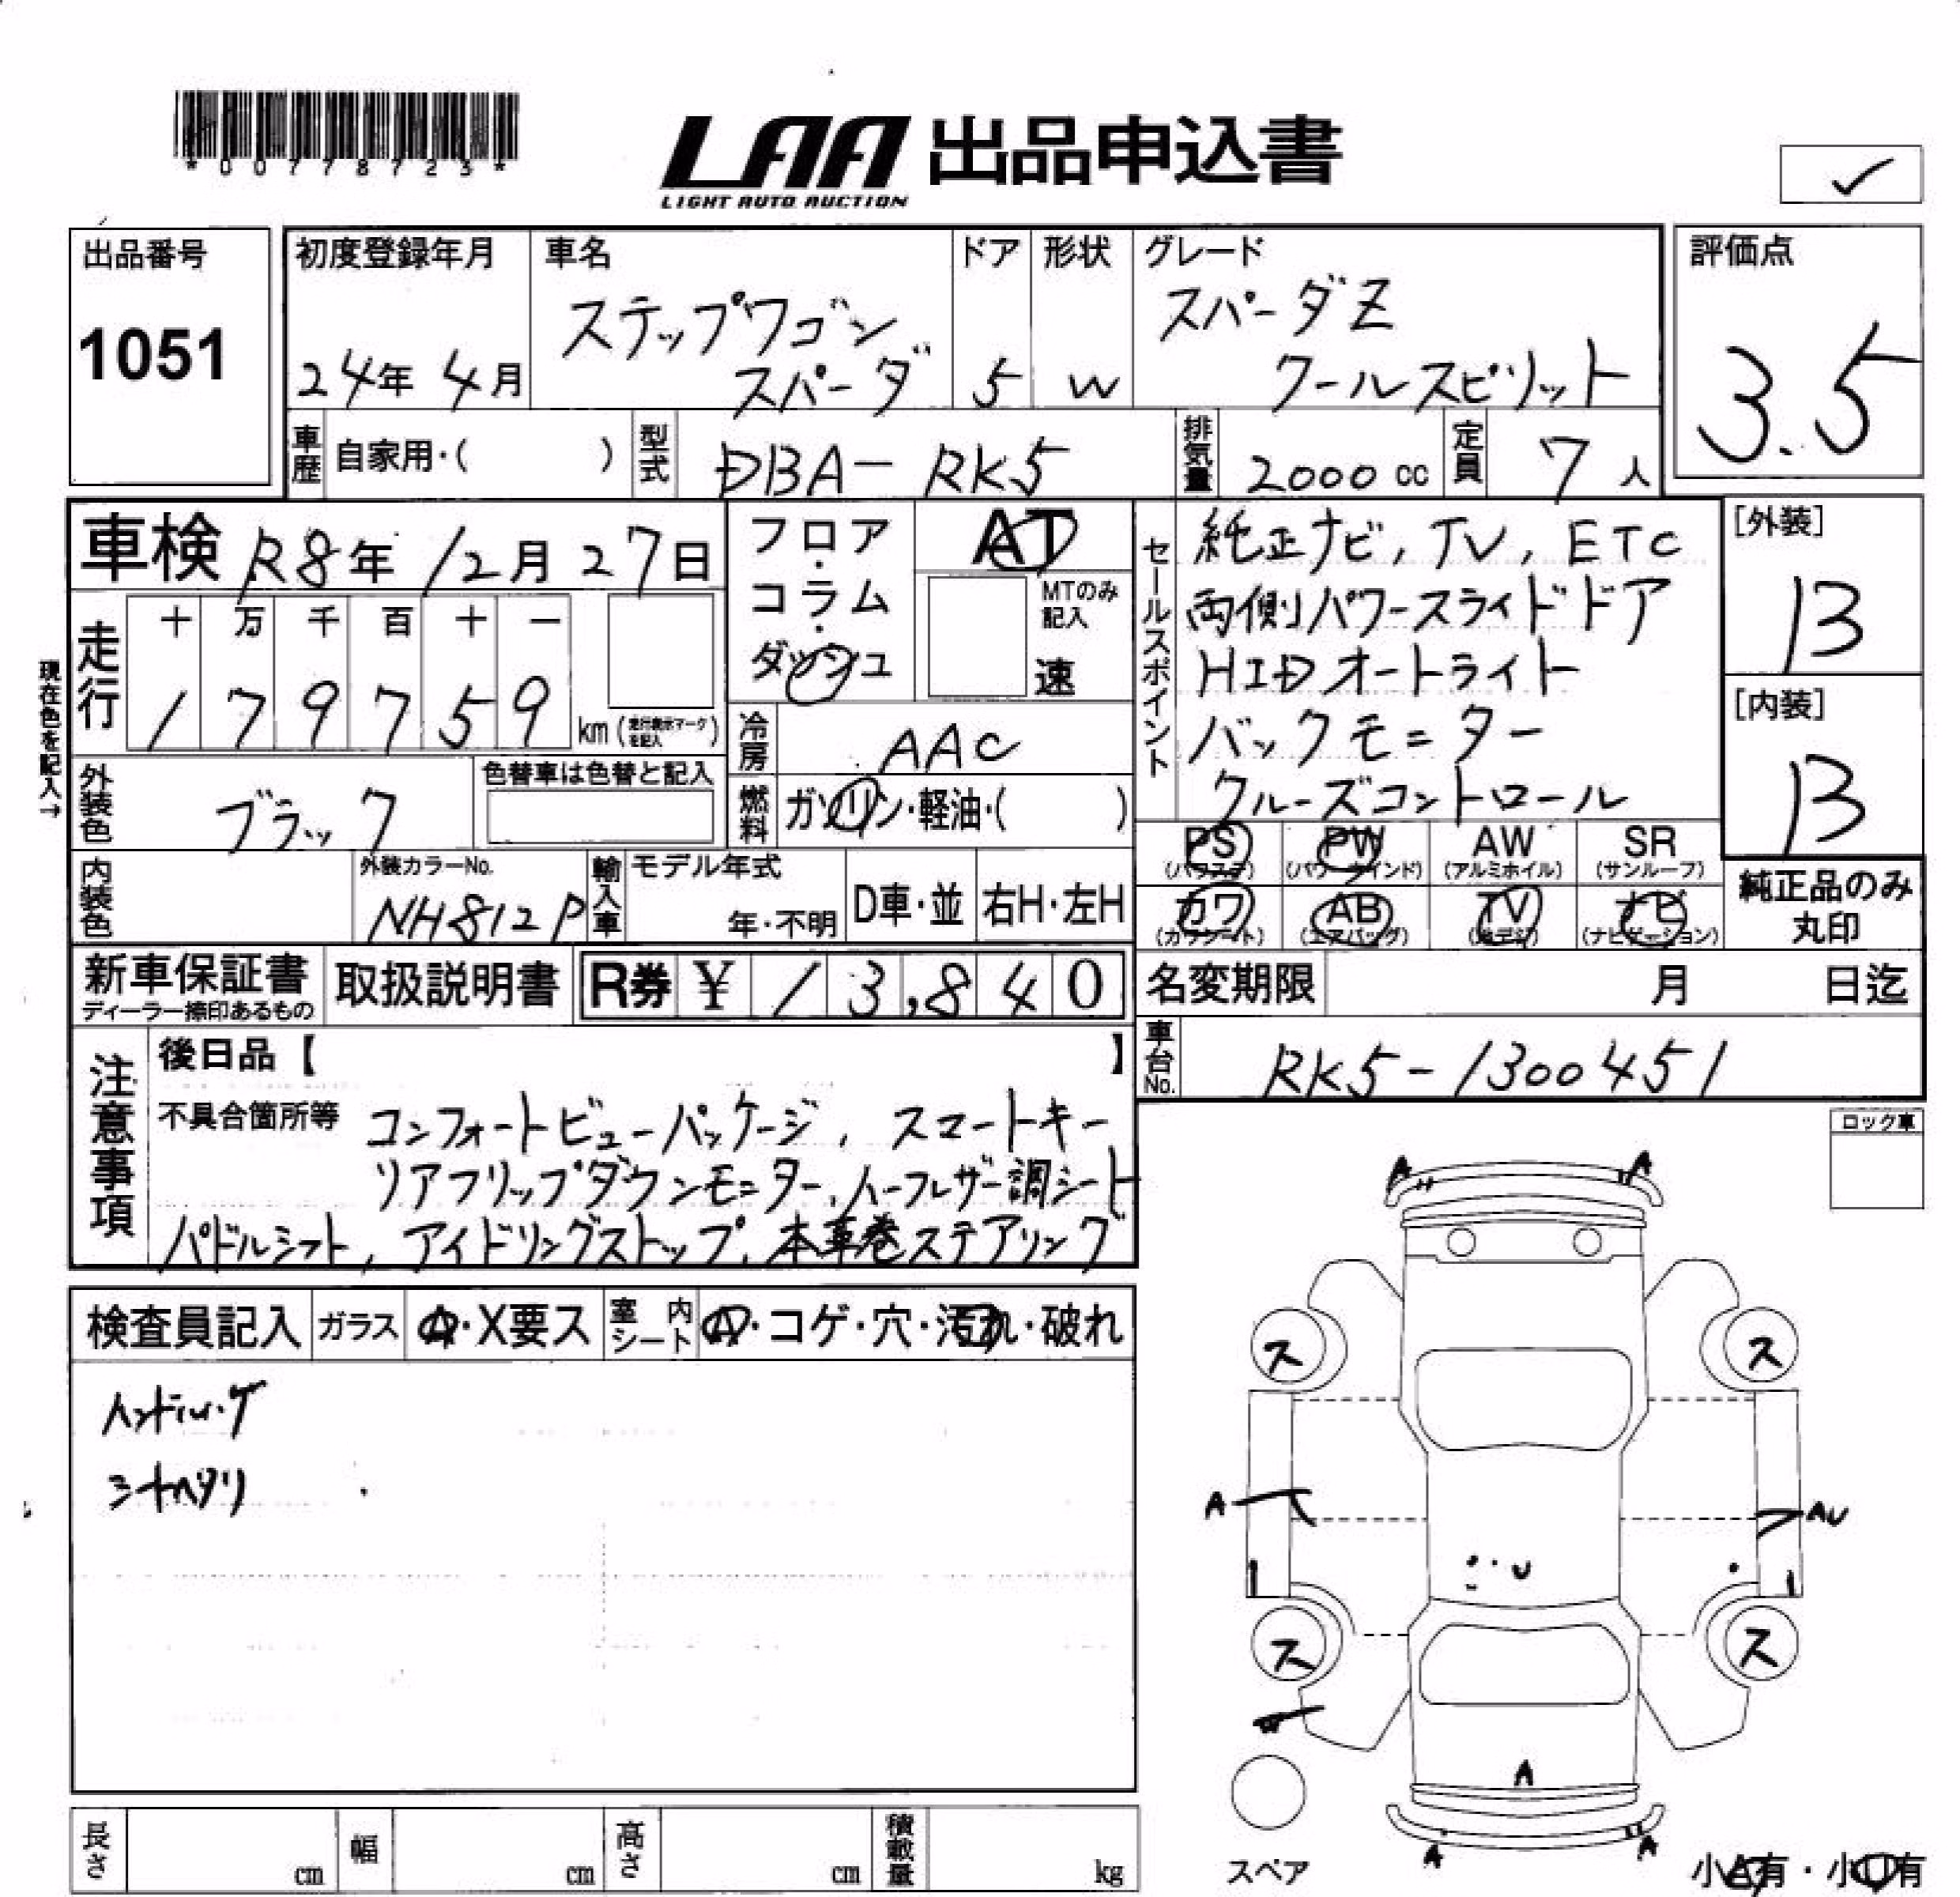 *00778723*
LAA 出品申込書
LIGHT AUTO AUCTION
出品番号
1051
初度登録年月
24年 4月
車名
ステップワゴン
スパーダ
ドア
5
形状
W
グレード
スパーダZ
クールスピリット
評価点
3.5
車歴 自家用・( )
型式 DBA-RK5
排気量 2000 cc
定員 7 人
車検 R8年 12月 27日
現在色を記入→
走行
十 万 千 百 十 一
1 7 9 7 5 9 km (走行表示マークを記入)
フロア・コラム・ダッシュ
AT
MTのみ記入
速
冷房 AAC
燃料 ガソリン・軽油・( )
外装色 ブラック
色替車は色替と記入
内装色
外装カラーNo.
NH812P
輸入車
モデル年式
年・不明
D車・並
右H・左H
セールスポイント
純正ナビ, TV, ETC
両側パワースライドドア
HIDオートライト
バックモニター
クルーズコントロール
[外装]
13
[内装]
13
PS (パワステ) PW (パワーウインド) AW (アルミホイル) SR (サンルーフ)
カワ (カワシート) AB (エアバッグ) TV (地デジ) ナビ (ナビゲーション)
純正品のみ
丸印
新車保証書
ディーラー捺印あるもの
取扱説明書
R券 ¥ 13,840
名変期限 月 日迄
車台No. RK5-1300451
注意事項
後日品【 】
不具合箇所等 コンフォートビューパッケージ, スマートキー
リアフリップダウンモニター, ハーフレザー調シート
パドルシフト, アイドリングストップ, 本革巻ステアリング
ロック車
検査員記入
ガラス A・X要ス
室内シート A・コゲ・穴・汚れ・破れ
シートヘタリ
A A
ス ス
A AU
U
ス ス
W
A
A A
スペア
小凸有・小凹有
長さ cm
幅 cm
高さ cm
積載量 kg